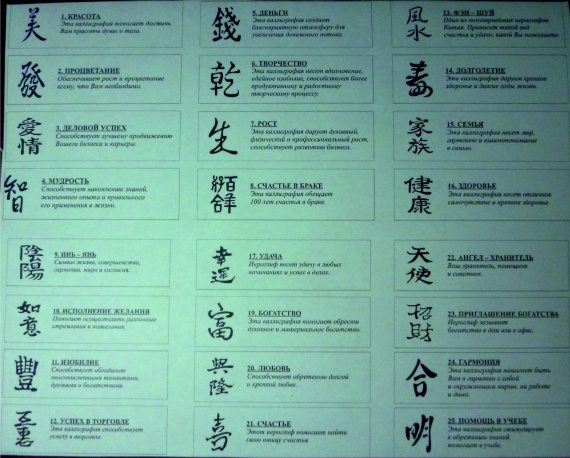 美
1. КРАСОТА
Эта каллиграфия помогает достичь
Вам красоты души и тела.
發
2. ПРОЦВЕТАНИЕ
Обеспечивает рост и процветание
всему, что Вам необходимо.
愛情
3. ДЕЛОВОЙ УСПЕХ
Способствует лучшему продвижению
Вашего бизнеса и карьеры.
智
4. МУДРОСТЬ
Способствует накоплению знаний,
жизненного опыта и правильного
его применения в жизни.
陰陽
9. ИНЬ – ЯНЬ
Символ жизни, совершенства,
гармонии, мира и согласия.
如意
10. ИСПОЛНЕНИЕ ЖЕЛАНИЯ
Помогает осуществить различные
стремления и пожелания.
豐
11. ИЗОБИЛИЕ
Способствует обладанию
многочисленными талантами,
друзьями и богатствами.
12. УСПЕХ В ТОРГОВЛЕ
Эта каллиграфия способствует
успеху в торговле.
錢
5. ДЕНЬГИ
Эта каллиграфия создает
благоприятную атмосферу для
увеличения денежного потока.
乾
6. ТВОРЧЕСТВО
Эта каллиграфия несет вдохновение,
идейное изобилие, способствует более
продуктивному и радостному
творческому процессу.
生
7. РОСТ
Эта каллиграфия дарует духовный,
физический и профессиональный рост,
способствует развитию бизнеса.
8. СЧАСТЬЕ В БРАКЕ
Эта каллиграфия обещает
100 лет счастья в браке.
幸運
17. УДАЧА
Иероглиф несет удачу в любых
начинаниях и успех в делах.
富
19. БОГАТСТВО
Эта каллиграфия помогает обрести
духовное и материальное богатство.
興隆
20. ЛЮБОВЬ
Способствует обретению долгой
и крепкой любви.
喜
21. СЧАСТЬЕ
Этот иероглиф помогает найти
свою птицу счастья
風水
13. ФЭН – ШУЙ
Один из популярнейших иероглифов
Китая. Принесет такой вид
счастья и удачи, какой Вы пожелаете.
壽
14. ДОЛГОЛЕТИЕ
Эта каллиграфия дарует крепкое
здоровье и долгие годы жизни.
家族
15. СЕМЬЯ
Эта каллиграфия несет мир,
гармонию и взаимопонимание
в семью.
健康
16. ЗДОРОВЬЕ
Эта каллиграфия несет отличное
самочувствие и крепкое здоровье.
天使
22. АНГЕЛ – ХРАНИТЕЛЬ
Ваш хранитель, помощник
и советник.
招財
23. ПРИГЛАШЕНИЕ БОГАТСТВА
Иероглиф зазывает
богатство в дом или в офис.
合
24. ГАРМОНИЯ
Эта каллиграфия помогает быть
Вам в гармонии с собой
и окружающим миром, на работе
и дома.
明
25. ПОМОЩЬ В УЧЕБЕ
Эта каллиграфия стимулирует
к обретению знаний,
помогает в учебе.